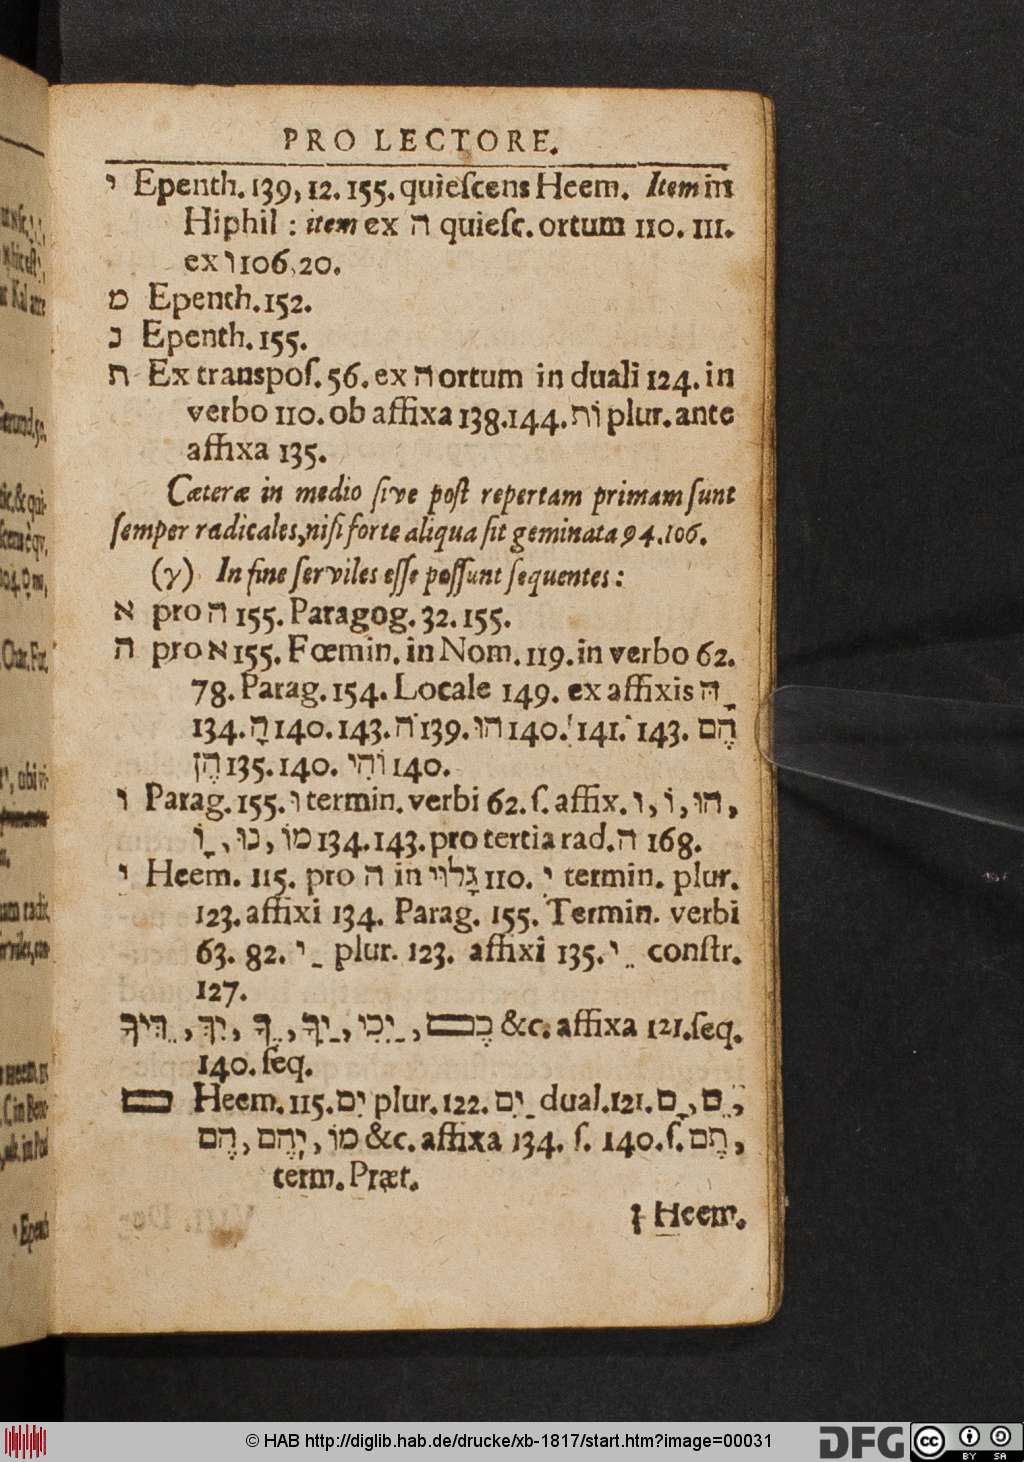 PRO LECTORE.
י Epenth. 139, 12. 155. quieſcens Heem. Item in
Hiphil : item ex ה quieſc. ortum 110. 111.
ex ו 106, 20.
מ Epenth. 152.
נ Epenth. 155.
ת Ex transpoſ. 56. ex ה ortum in duali 124. in
verbo 110. ob affixa 138. 144. וֹת plur. ante
affixa 135.
Cæteræ in medio ſive poſt repertam primam ſunt
ſemper radicales, niſi forte aliqua ſit geminata 94. 106.
(γ) In fine ſerviles eſſe poſſunt ſequentes :
א pro ה 155. Paragog. 32. 155.
ה pro א 155. Fœmin. in Nom. 119. in verbo 62.
78. Parag. 154. Locale 149. ex affixis ָהּ
134. הָ 140. 143. הֹ 139. הוּ 140. 141. 143. הֶם
הֶן 135. 140. וֹהִי 140.
ו Parag. 155. וּ termin. verbi 62. ſ. affix. הוּ, וֹ, ו,
מוֹ, נוּ, ָו 134. 143. pro tertia rad. ה 168.
י Heem. 115. pro ה in גָלוּי 110. יִ termin. plur.
123. affixi 134. Parag. 155. Termin. verbi
63. 82. ַי plur. 123. affixi 135. ֵי conſtr.
127.
כֶם, ַיִכִי, ַיִךְ, ֶךָ, יִךְ, ֶיךָ &c. affixa 121. ſeq.
140. ſeq.
ם Heem. 115. יִם plur. 122. ַיִם dual. 121. ָם, ֵם,
תֶם, מוֹ, יְהֶם, הֶם &c. affixa 134. ſ. 140. ſ.
term. Præt.
ן Heem.
© HAB http://diglib.hab.de/drucke/xb-1817/start.htm?image=00031
DFG
cc BY SA